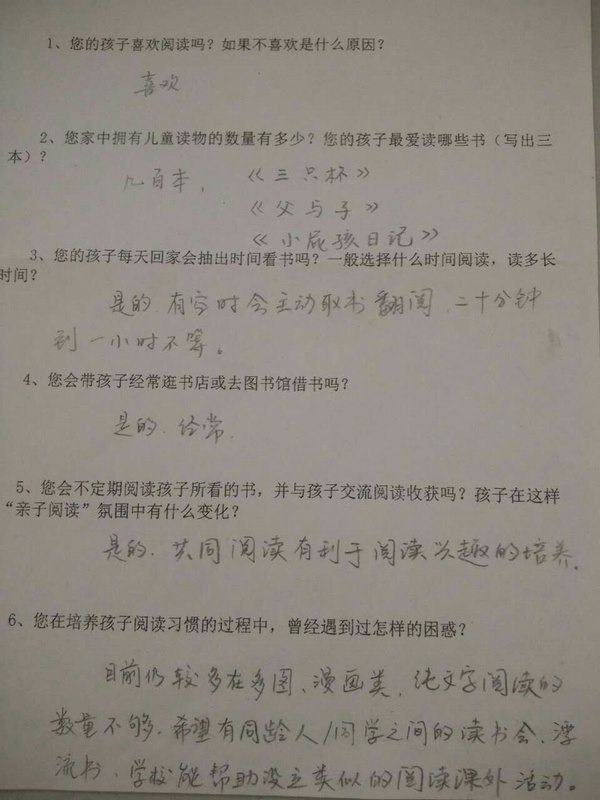 1、您的孩子喜欢阅读吗？如果不喜欢是什么原因？
喜欢
2、您家中拥有儿童读物的数量有多少？您的孩子最爱读哪些书（写出三
本）？
几百本， 《三只杯》
《父与子》
《小屁孩日记》
3、您的孩子每天回家会抽出时间看书吗？一般选择什么时间阅读，读多长
时间？
是的，有空时会主动取书翻阅，二十分钟
到一小时不等。
4、您会带孩子经常逛书店或去图书馆借书吗？
是的，经常，
5、您会不定期阅读孩子所看的书，并与孩子交流阅读收获吗？孩子在这样
“亲子阅读”氛围中有什么变化？
是的，共同阅读有利于阅读兴趣的培养。
6、您在培养孩子阅读习惯的过程中，曾经遇到过怎样的困惑？
目前仍较多在多图、漫画类，纯文字阅读的
数量不够，希望有同龄人/同学之间的读书会、漂
流书，学校能帮助设立类似的阅读课外活动。